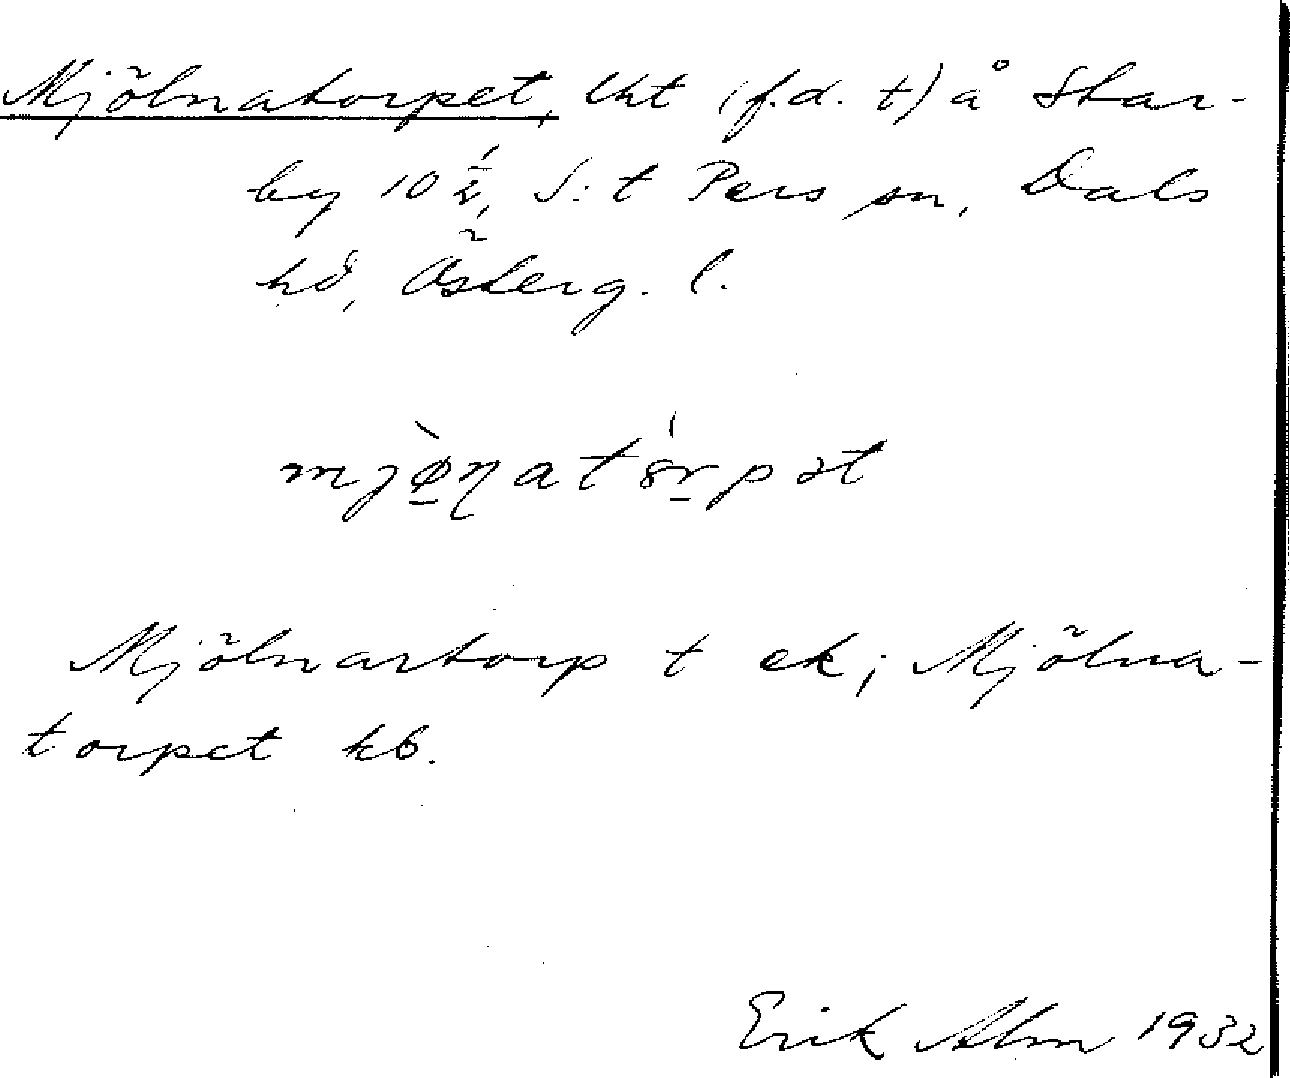 Mjölnatorpet, lht (f.d. t) å Star-
by 10 ½, S:t Pers sn, Dals
hd, Österg. l.
mjø̠̀ɳatȣ́r̠pət
Mjölnartorp t ek; Mjölna-
torpet kb.
Erik Alm 1932